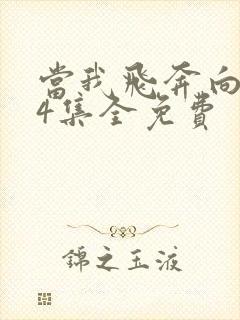 當我飛奔向
4集全免費
錦之玉液